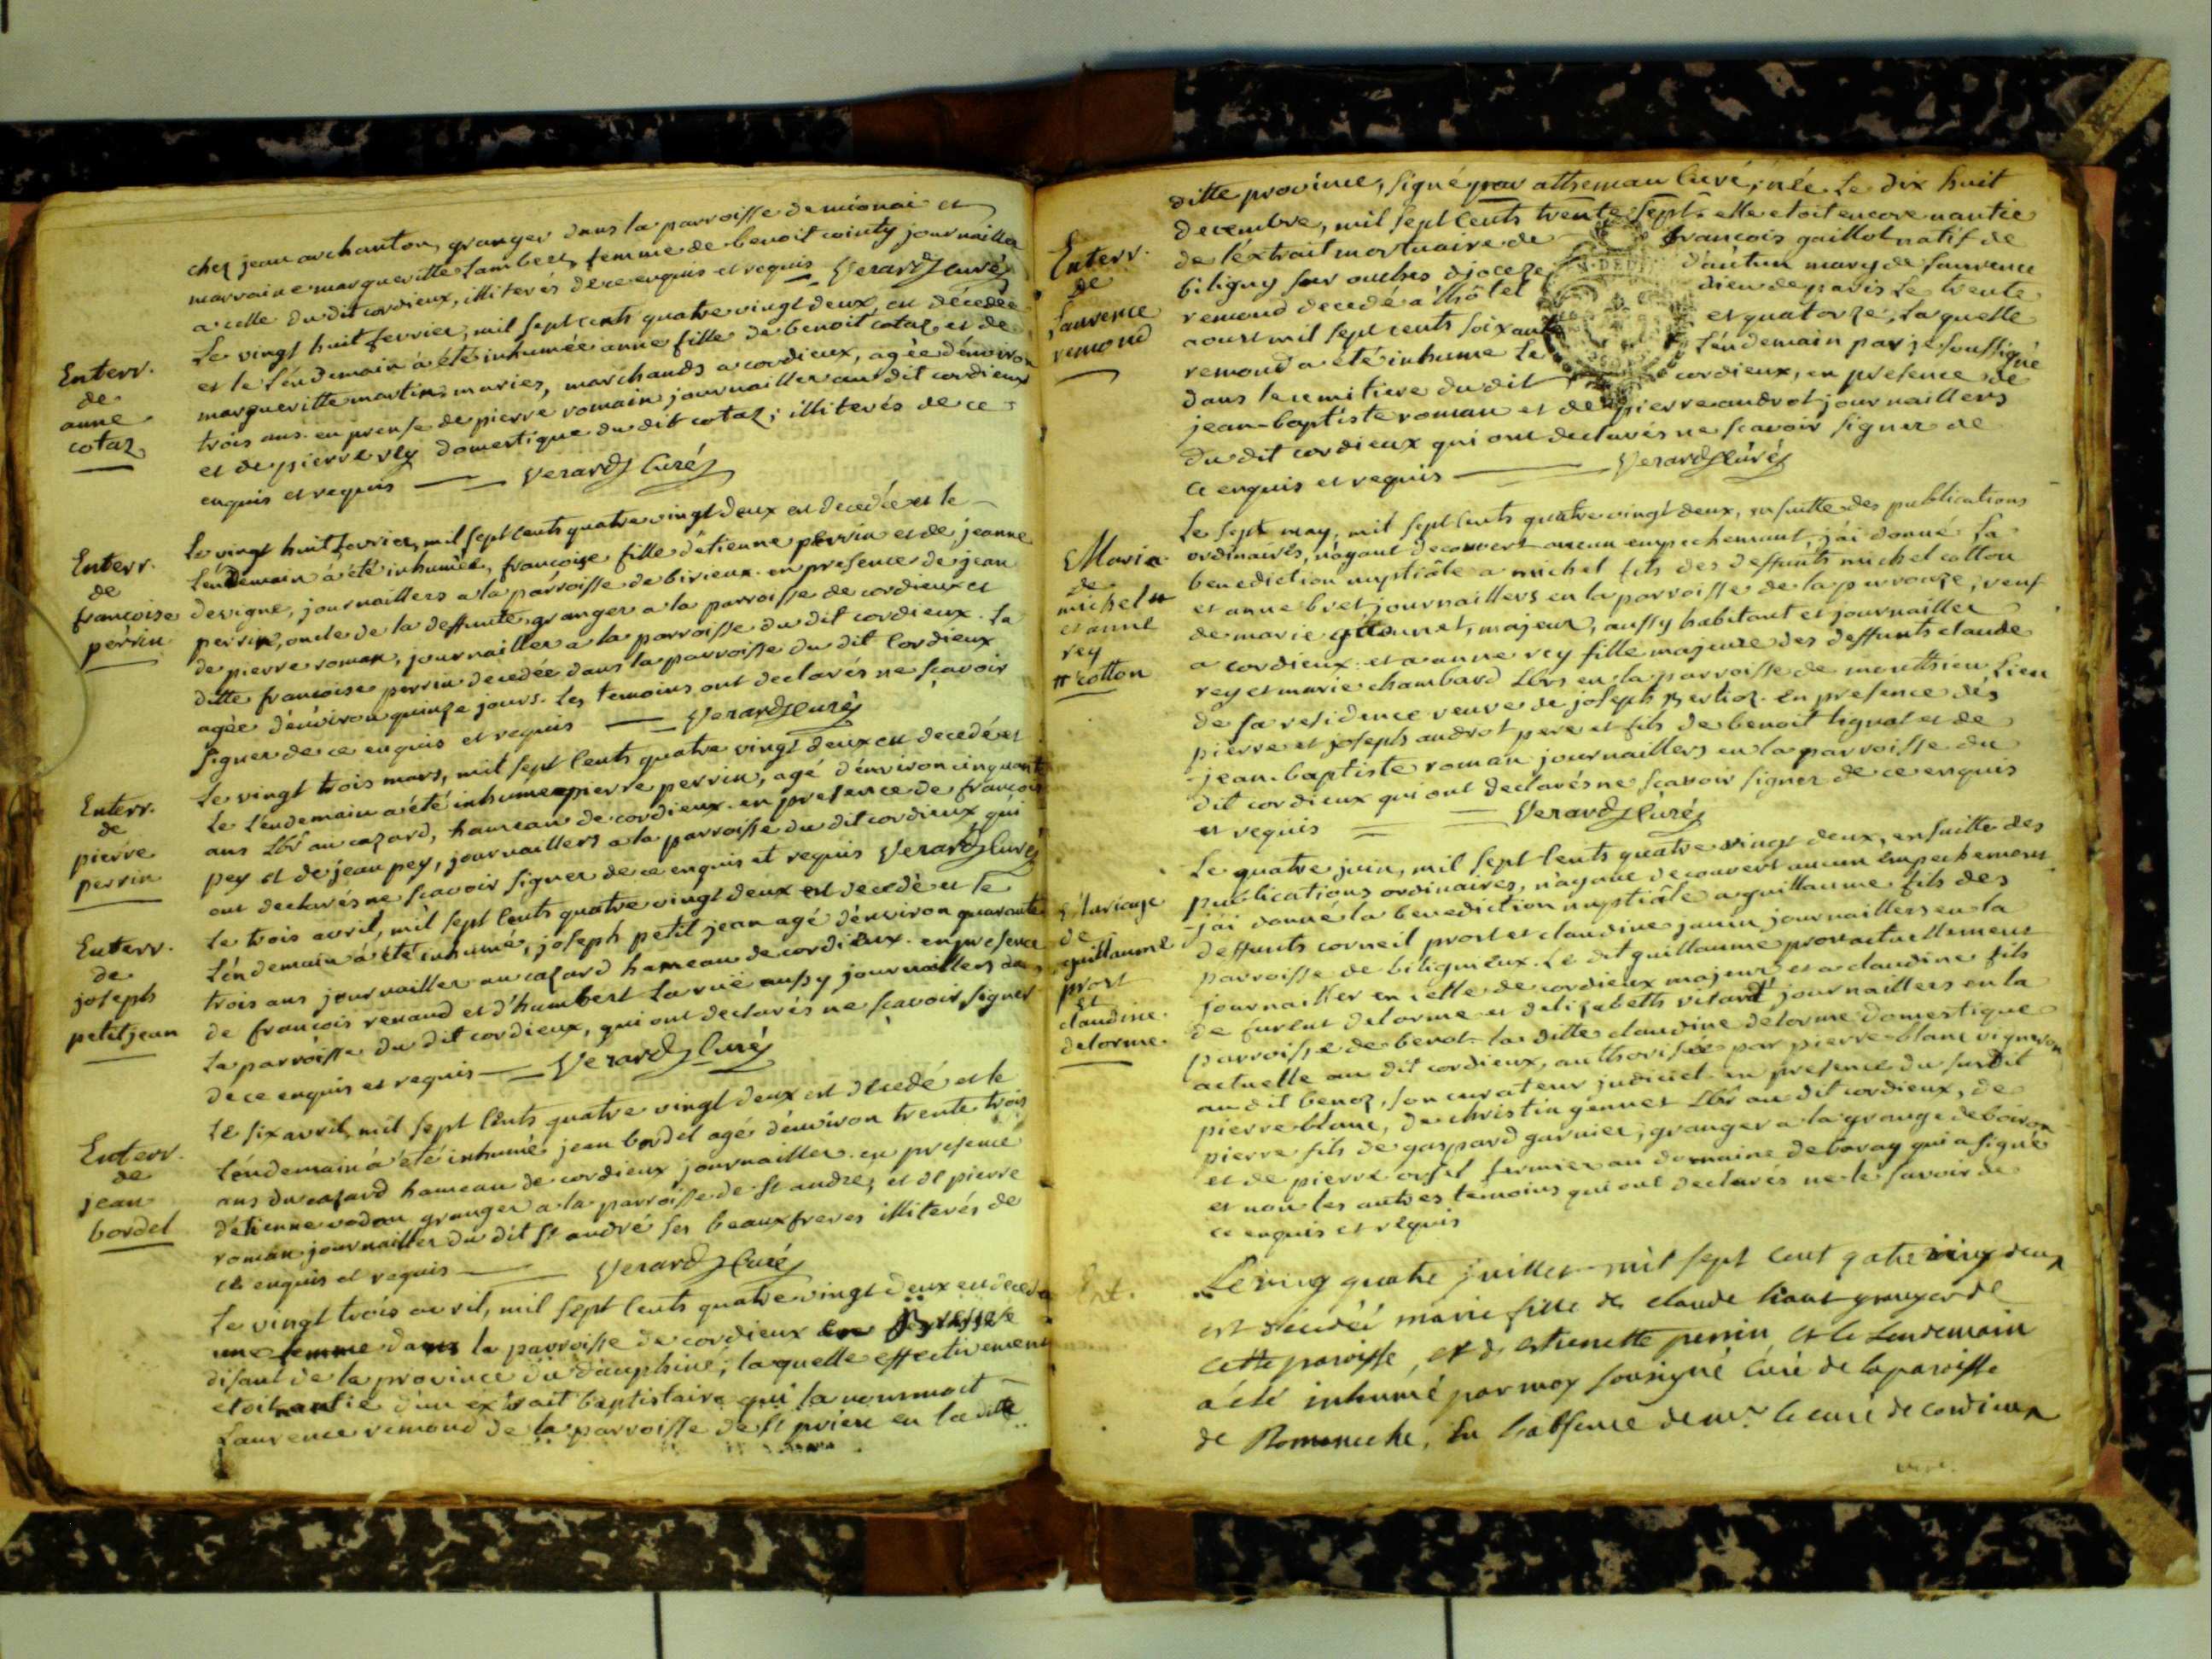 chez jean archanton, granger dans la parroisse de mionai et
marraine margueritte Lambert, femme de benoit cointy journailler
a celle du dit cordieux, illiterés de ce enquis et requis Verard Curé
Enterr.
de
anne
cotaz
Le vingt huit fevrier, mil sept cents quatre vingt deux, est décedée
et le léndemain à été inhumée anne fille de benoit cotaz, et de
margueritte martin, mariés, marchands a cordieux, agée d'énviron
trois ans. en prense de pierre romain journailler au dit cordieux
et de pierre rey domestique du dit cotaz; illiterés de ce
enquis et requis Verard Curé
Enterr.
de
francoise
perrin
Le vingt huit fevrier, mil sept cents quatre vingt deux est decedée et le
léndemain à été inhumée, francoise fille d'étienne perrin et de jeanne
devigne, journaillers a la parroisse de birieux. en presence de jean
perrin, oncle de la deffunte, granger a la parroisse de cordieux et
de pierre roman, journailler a la parroisse du dit cordieux. La
ditte francoise perrin decedée dans la parroisse du dit Cordieux
agée d'énviron quinze jours. Les temoins ont declarés ne scavoir
signer de ce enquis et requis Verard Curé
Enterr.
de
pierre
perrin
Le vingt trois mars, mil sept cents quatre vingt deux est decedé et
le léndemain a été inhume pierre perrin, agé d'énviron cinquante
ans Lbr au cazard, hameau de cordieux. en presence de francois
pey et de jean pey, journaillers a la parroisse du dit cordieux qui
ont declarés ne scavoir signer de ce enquis et requis Verard Curé
Enterr.
de
joseph
petitjean
Le trois avril, mil sept cents quatre vingt deux est decedé et le
léndemain a été inhumé, joseph petit jean agé d'énviron quarante
trois ans journailler au cazard hameau de cordieux. en presence
de francois renaud et d'humbert Larue aussy journaillers dans
la parroisse du dit cordieux, qui ont declarés ne scavoir signer
de ce enquis et requis Verard Curé
Enterr.
de
jean
bordel
Le six avril, mil sept cents quatre vingt deux est decedé et le
léndemain à été inhumé jean bordel agé d'énviron trente trois
ans du cazard hameau de cordieux journailler. en presence
d'étienne vodan granger a la parroisse de st andre, et de pierre
roman journailler du dit st andré ses beaux freres illiterés de
ce enquis et requis Verard Curé
Le vingt trois avril, mil sept cents quatre vingt deux est decedé
une femme dans la parroisse de cordieux en Bresse se
disant de la province du dauphiné; laquelle effectivement
étoit nantie d'un éxtrait baptistaire qui la nommoit
Laurence remond de la parroisse de st prien en la ditte
Enterr.
de
Laurence
remond
ditte province, signé par atheman Curé, née Le dix huit
decembre, mil sept cents trente sept. elle etoit encore nantie
de l'éxtrait mortuaire de francois gaillot natif de
biligny sur ouches diocèze d'autun mary de Laurence
remond decedé a l'hôtel dieu de paris Le trente
aoust mil sept cents soixante et quatorze, Laquelle
remond a été inhume Le léndemain par je soussigné
dans le cemitiere du dit cordieux, en presence de
jean-baptiste roman et de pierre androt journaillers
du dit cordieux qui ont declarés ne scavoir signer de
ce enquis et requis Verard Curé
Maria
de
michel #
et anne
rey
# cotton
Le sept may, mil sept cents quatre vingt deux, ensuitte des publications
ordinaires, n'ayant decouvert aucun empechement, j'ai donné la
benediction nuptiâle a michel fils des deffunts michel cotton
et anne bret journaillers en la parroisse de la peyrouze, veuf
de marie, majeur, aussy habitant et journailler
a cordieux. et a anne rey fille majeure des deffunts claude
rey et marie chambard Lbrs en la parroisse de monthieu Lieu
de sa residence veuve de joseph Berlioz. En presence des
pierre et joseph androt pere et fils de benoit lignat et de
jean-baptiste roman journaillers en la parroisse du
dit cordieux qui ont declarés ne scavoir signer de ce enquis
et requis Verard Curé
Mariage
de
guillaume
prost
Et
claudine
delorme.
Le quatre juin, mil sept cents quatre vingt deux, ensuitte des
publications ordinaires, n'ayant decouvert aucun empechement
j'ai donné la benediction nuptiâle a guillaume fils des
deffunts corneil prost et claudine janin journaillers en la
parroisse de biliguieux. Le dit guillaume prost actuellement
journailler en celle de cordieux majeur et a claudine fils
de furent delorme et d'elizabeth vitard journaillers en la
parroisse de benot. la ditte claudine delorme domestique
actuelle au dit cordieux, authorisée par pierre blanc vigneron
au dit benoz, son curateur judiciel. en presence du susdit
pierre blanc, de christin gennet Lbr au dit cordieux, de
pierre fils de gaspard garnier, granger a la grange de boiron
et de pierre orsel fermier au domaine de boray qui a signé
et non les autres témoins qui ont declarés ne le savoir de
ce enquis et requis
Ent.
Le ving quatre juillet mil sept cent qatre ving deux
est decedéé marie fille de claude liaut granger de
cette paroisse, et d'estienette perrin et le lendemain
a été inhumé par moy sousigné Curé de la paroisse
de Romaneche, En l'absence de mr. le curé de cordieux